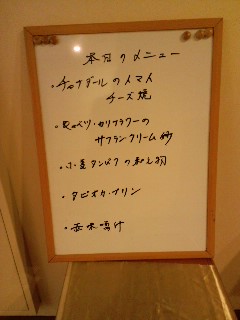 本日のメニュー
・チャナダールのトマト
チーズ焼
・キャベツ・カリフラワーの
サフランクリーム
・小豆タンドクの和え物
・タピオカ・プリン
・赤味噌汁